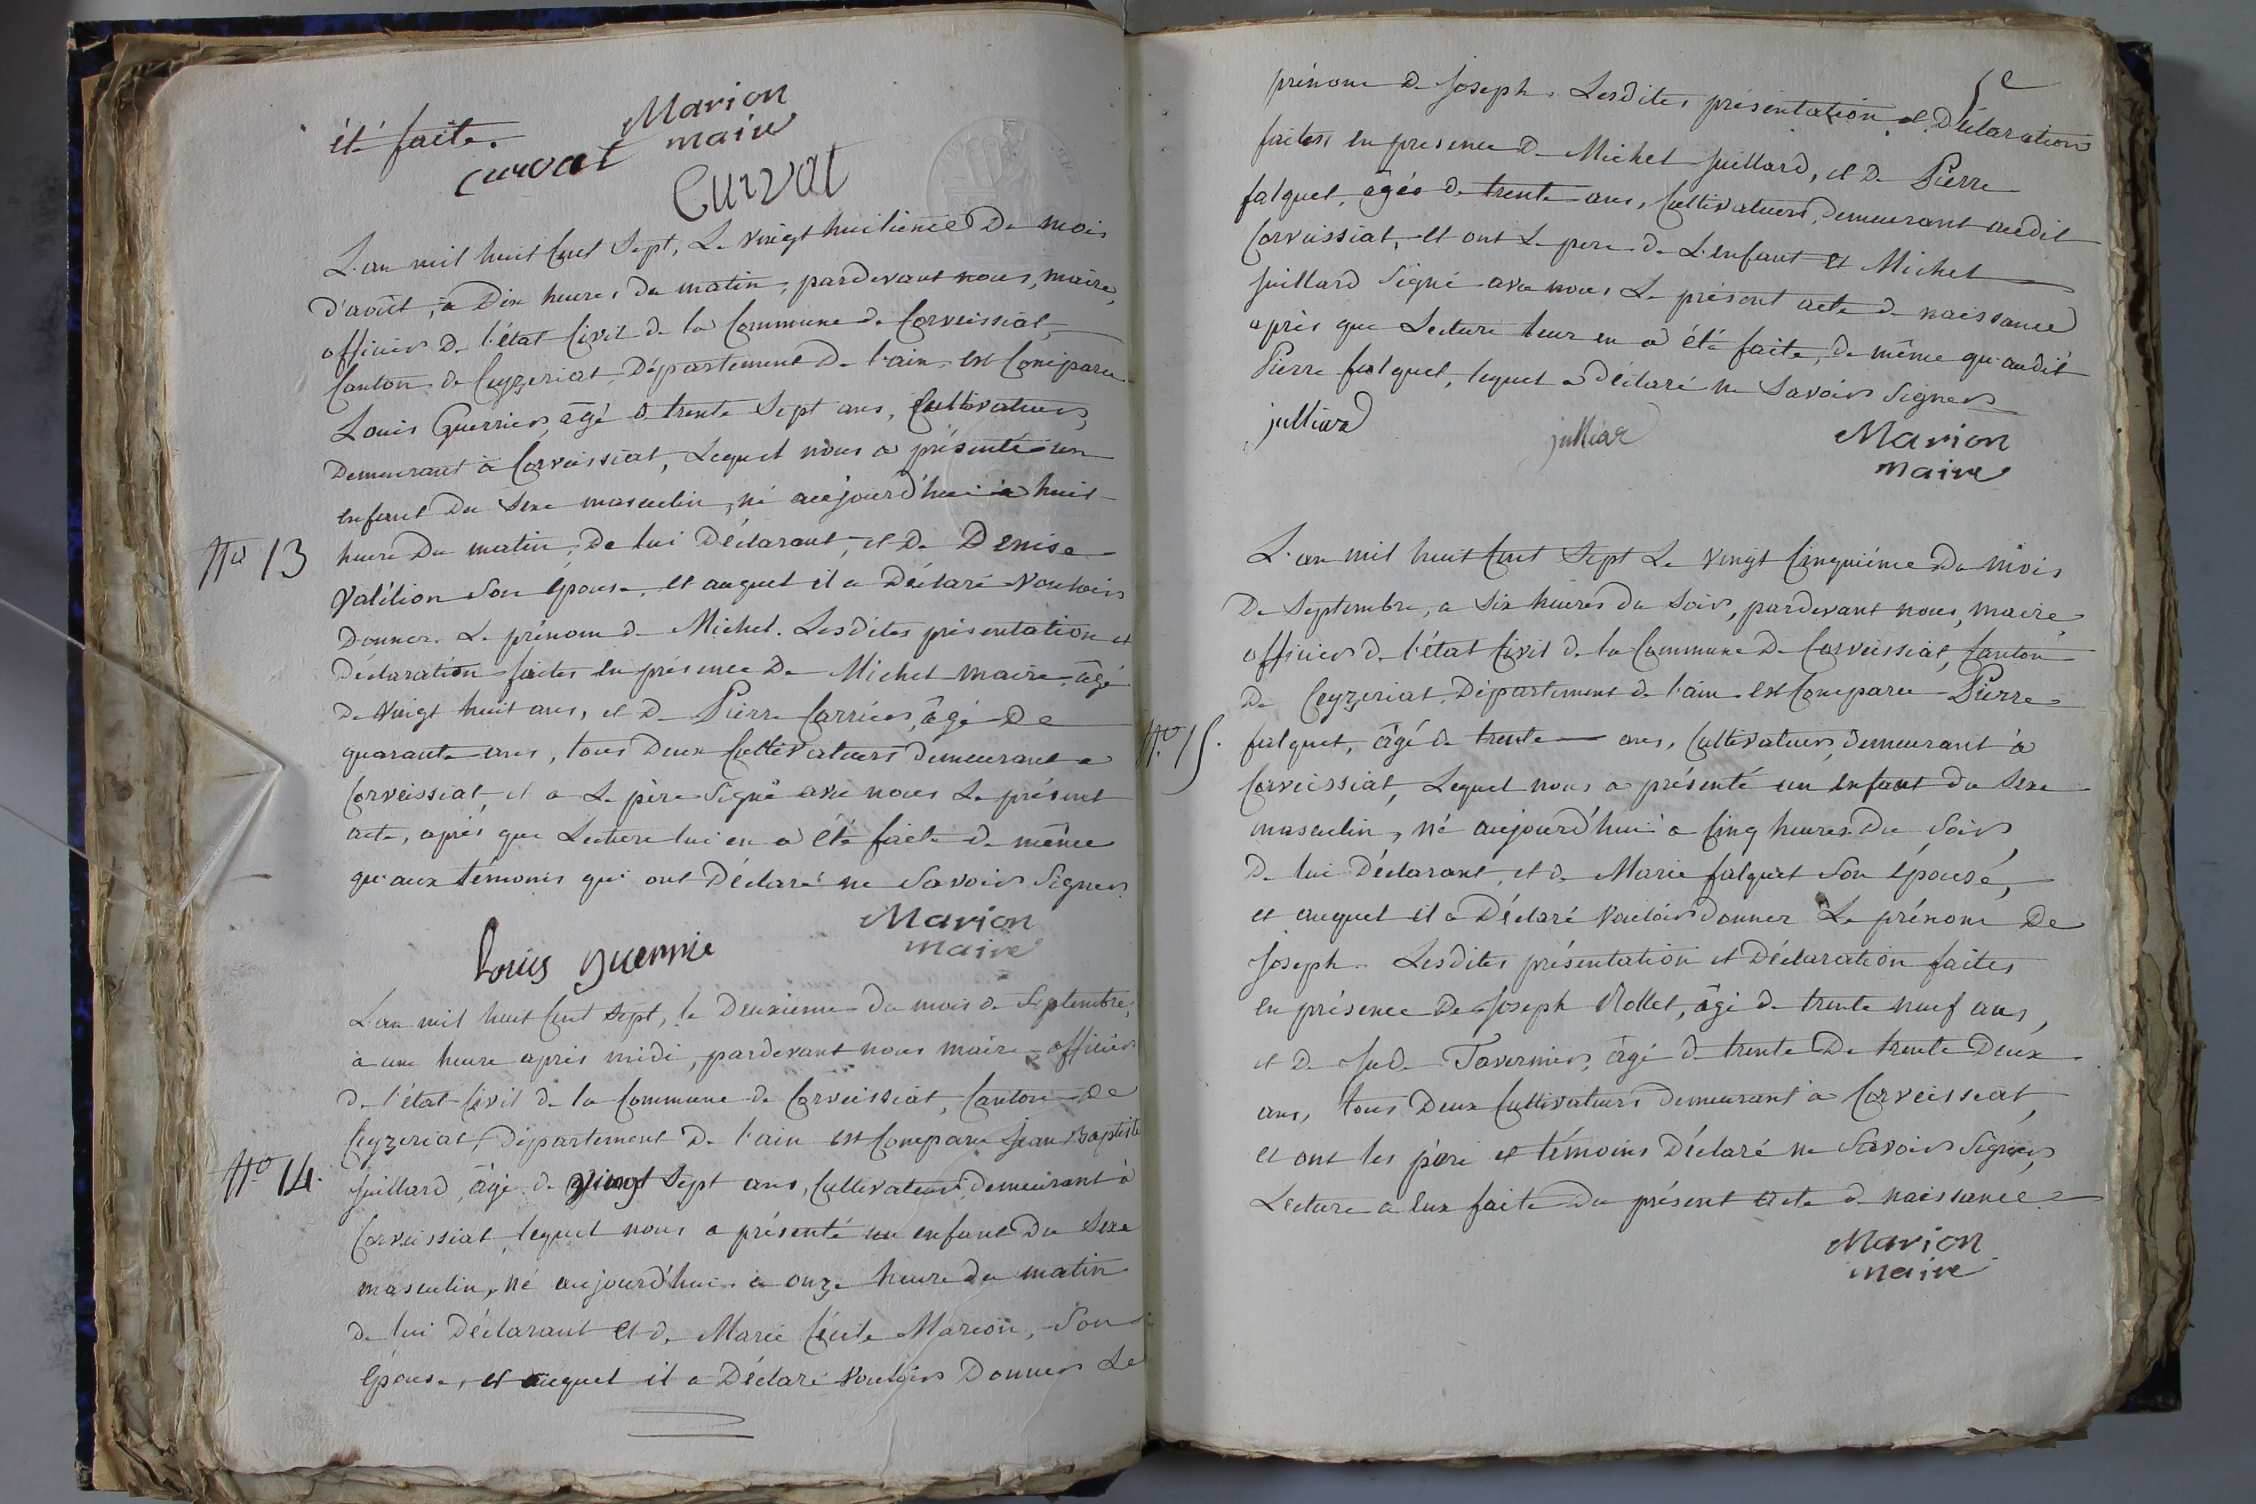 été faite.
Marion
maire
curvat
Curvat
L'an mil huit Cent Sept, Le vingt huitieme Du mois
D'août, à Dix heures du matin, pardevant nous, maire,
officier De l'état Civil de la Commune de Corveissiat,
Canton de Ceyzeriat, Département De l'ain, est Comparu
Louis Guerrier, âgé de trente Sept ans, Cultivateur,
Demeurant à Corveissiat, Lequel nous a présenté un
enfant Du Sexe masculin, né aujourd'hui à huit
N.o 13
heure Du matin, De lui Déclarant, et De Denise
Valélion Son épouse, et auquel il a Déclaré Vouloir
Donner Le prénom de Michel. Lesdites présentation et
Déclaration faites en présence De Michel Maire, âgé
De Vingt huit ans, et De Pierre Carrier, âgé De
quarante ans, tous Deux Cultivateurs Demeurant a
Corveissiat, et a Le père Signé avec nous Le présent
acte, après que Lecture lui en a été faite de même
qu'aux témoins qui ont Déclaré ne Savoir Signer.
Marion
maire
Louis guerrie
L'an mil huit Cent Sept, le Deuxieme Du mois de Septembre,
à une heure après midi, pardevant nous maire officier
De l'état Civil de la Commune de Corveissiat, Canton De
Ceyzeriat, Département De l'ain est Comparu Jean Baptiste
N.o 14.
Juillard, âgé de vingt Sept ans, Cultivateur, demeurant à
Corveissiat, lequel nous a présenté un enfant Du Sexe
masculin, né aujourd'hui a onze heure du matin
De lui Déclarant et de Marie Cécile Marion, Son
épouse, et auquel il a Déclaré Vouloir Donner Le
prénom De Joseph. Lesdites présentation et Déclaration
faites en presence De Michel Juillard, et De Pierre
falquet, âgés de trente ans, Cultivateurs, demeurant audit
Corveissiat, et ont Le pere de L'enfant et Michel
Juillard Signé avec nous Le présent acte de naissance
après que Lecture leur en a été faite, de même qu'audit
Pierre falquet, lequel a déclaré ne Savoir Signer
julliard
julliar
Marion
maire
L'an mil huit Cent Sept Le vingt Cinquiéme Du mois
De Septembre, a Six heures du Soir, pardevant nous, maire,
officier de l'état Civil de la Commune De Corveissiat, Canton
De Ceyzeriat, Département de l'ain est Comparu Pierre
N.o 15.
falquet, âgé de trente ans, Cultivateur, demeurant à
Corveissiat, Lequel nous a présenté un enfant du Sexe
masculin, né aujourd'hui a Cinq heures Du Soir,
De lui Déclarant, et de Marie falquet Son épouse,
et auquel il a Déclaré Vouloir donner Le prénom De
Joseph. Lesdites présentation et Déclaration faites
en présence De Joseph Rollet, âgé de trente neuf ans,
et De Jude Tavernier, âgé de trente De trente Deux
ans, tous Deux Cultivateurs demeurant à Corveissiat,
et ont les père et témoins Déclaré ne Savoir Signer,
Lecture a eux faite du présent acte de naissance.
Marion
maire